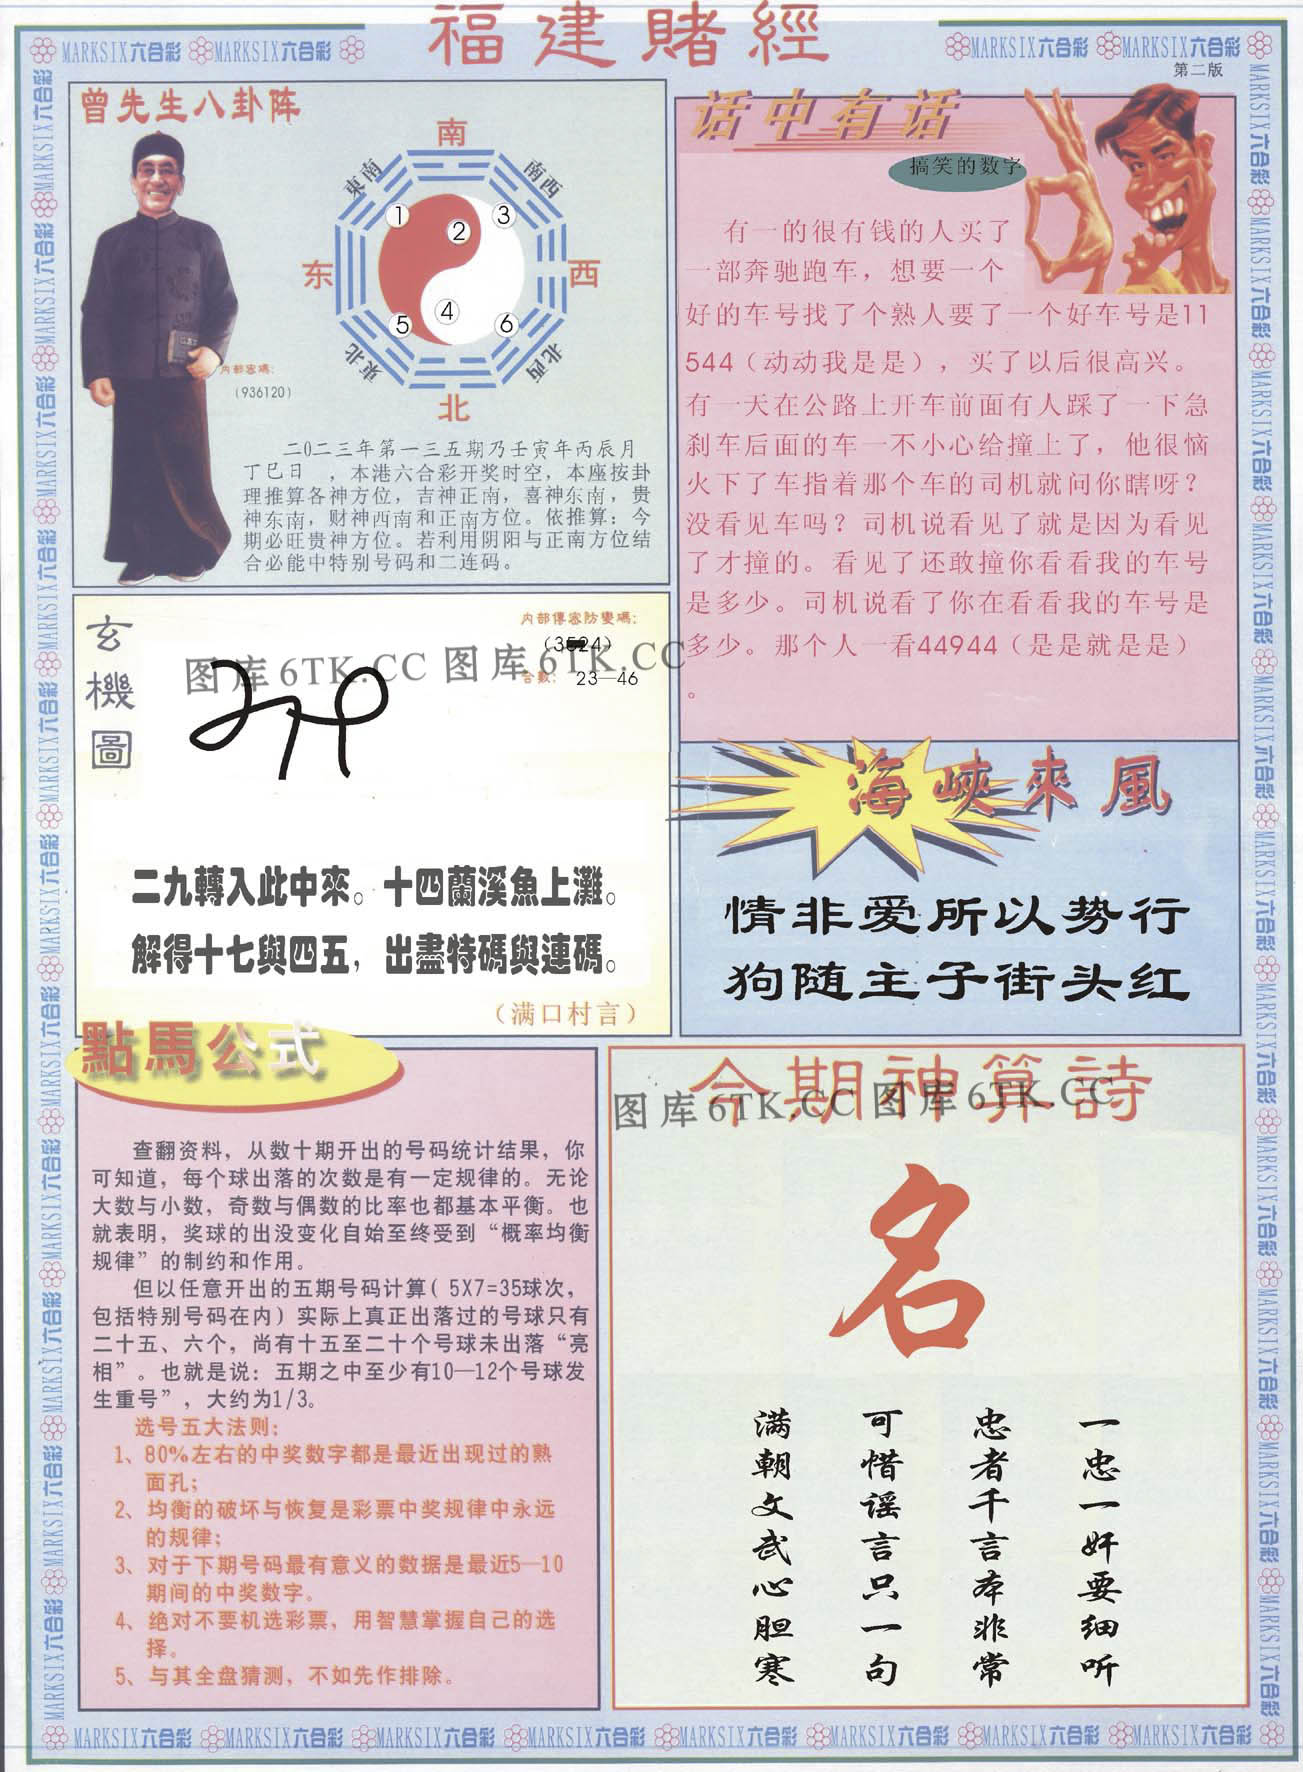 福建賭經
MARKSIX六合彩 MARKSIX六合彩
MARKSIX六合彩 MARKSIX六合彩
第二版
曾先生八卦阵
南
東南
南西
1
2
3
东
西
4
5
6
東北
北西
北
内部密碼：
（936120）
二0二三年第一三五期乃壬寅年丙辰月
丁巳日 ，本港六合彩开奖时空，本座按卦
理推算各神方位，吉神正南，喜神东南，贵
神东南，财神西南和正南方位。依推算：今
期必旺贵神方位。若利用阴阳与正南方位结
合必能中特别号码和二连码。
话中有话
搞笑的数字
有一的很有钱的人买了
一部奔驰跑车，想要一个
好的车号找了个熟人要了一个好车号是11
544（动动我是是），买了以后很高兴。
有一天在公路上开车前面有人踩了一下急
刹车后面的车一不小心给撞上了，他很恼
火下了车指着那个车的司机就问你瞎呀？
没看见车吗？司机说看见了就是因为看见
了才撞的。看见了还敢撞你看看我的车号
是多少。司机说看了你在看看我的车号是
多少。那个人一看44944（是是就是是）
。
玄機圖
内部傳密防變碼：
（3524）
合數： 23—46
图库6TK.CC 图库6TK.CC
二九轉入此中來。十四蘭溪魚上灘。
解得十七與四五，出盡特碼與連碼。
（满口村言）
海峽來風
情非爱所以势行
狗随主子街头红
點馬公式
查翻资料，从数十期开出的号码统计结果，你
可知道，每个球出落的次数是有一定规律的。无论
大数与小数，奇数与偶数的比率也都基本平衡。也
就表明，奖球的出没变化自始至终受到“概率均衡
规律”的制约和作用。
但以任意开出的五期号码计算（5X7=35球次，
包括特别号码在内）实际上真正出落过的号球只有
二十五、六个，尚有十五至二十个号球未出落“亮
相”。也就是说：五期之中至少有10—12个号球发
生重号”，大约为1/3。
选号五大法则：
1、80%左右的中奖数字都是最近出现过的熟
面孔；
2、均衡的破坏与恢复是彩票中奖规律中永远
的规律；
3、对于下期号码最有意义的数据是最近5—10
期间的中奖数字。
4、绝对不要机选彩票，用智慧掌握自己的选
择。
5、与其全盘猜测，不如先作排除。
今期神算詩
图库6TK.CC 图库6TK.CC
名
一忠一奸要细听
忠者千言本非常
可惜谣言只一句
满朝文武心胆寒
MARKSIX六合彩 MARKSIX六合彩 MARKSIX六合彩 MARKSIX六合彩 MARKSIX六合彩 MARKSIX六合彩 MARKSIX六合彩 MARKSIX六合彩